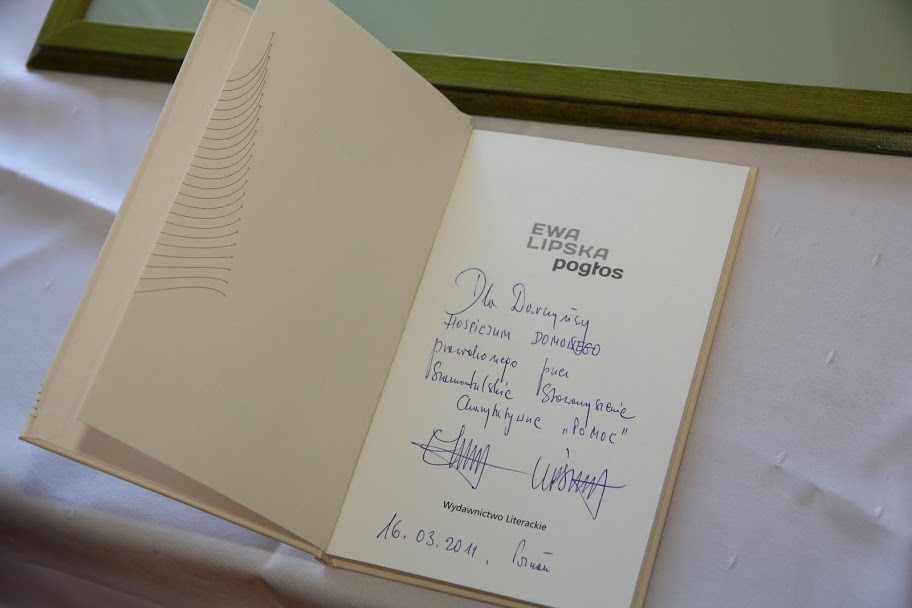 EWA
LIPSKA
pogłos
Dla Darczyńcy
HOSPICJUM DOMOWEGO
prowadzonego przez
Szamotulskie Stowarzyszenie
Charytatywne „POMOC”
Ewa Lipska
Wydawnictwo Literackie
16.03.2011, Poznań